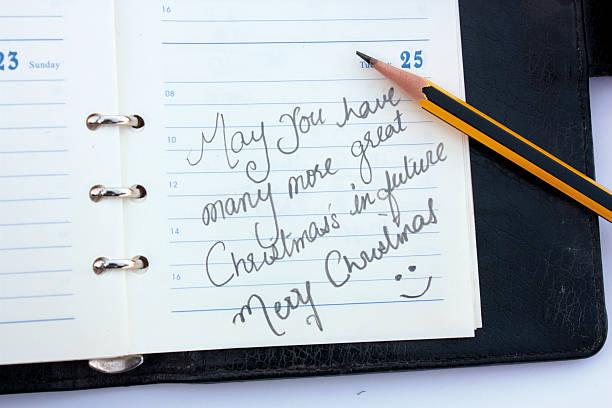 23 Sunday
16
25
08
10
12
14
16
May you have
many more great
Christmas's in future
Merry Christmas